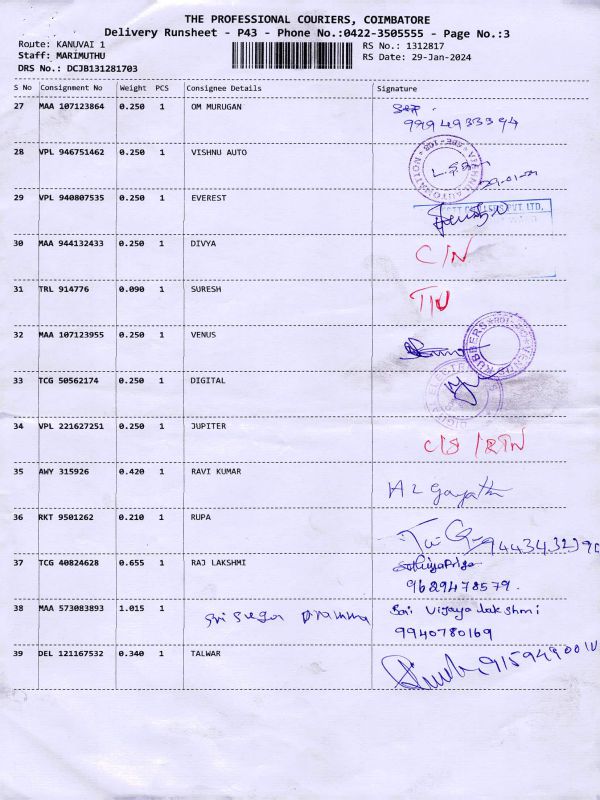 THE PROFESSIONAL COURIERS, COIMBATORE
Delivery Runsheet - P43 - Phone No.:0422-3505555 - Page No.:3
Route: KANUVAI 1 RS No.: 1312817
Staff: MARIMUTHU RS Date: 29-Jan-2024
DRS No.: DCJB131281703
S No Consignment No Weight PCS Consignee Details Signature
27 MAA 107123864 0.250 1 OM MURUGAN
9994933394
28 VPL 946751462 0.250 1 VISHNU AUTO
29 VPL 940807535 0.250 1 EVEREST
30 MAA 944132433 0.250 1 DIVYA C/N
31 TRL 914776 0.090 1 SURESH
32 MAA 107123955 0.250 1 VENUS
VENUS RUBBERS
33 TCG 50562174 0.250 1 DIGITAL
34 VPL 221627251 0.250 1 JUPITER C/S /RTN
35 AWY 315926 0.420 1 RAVI KUMAR
36 RKT 9501262 0.210 1 RUPA
37 TCG 40824628 0.655 1 RAJ LAKSHMI
9629478579.
38 MAA 573083893 1.015 1 Vijaya lakshmi
9940780169
39 DEL 121167532 0.340 1 TALWAR